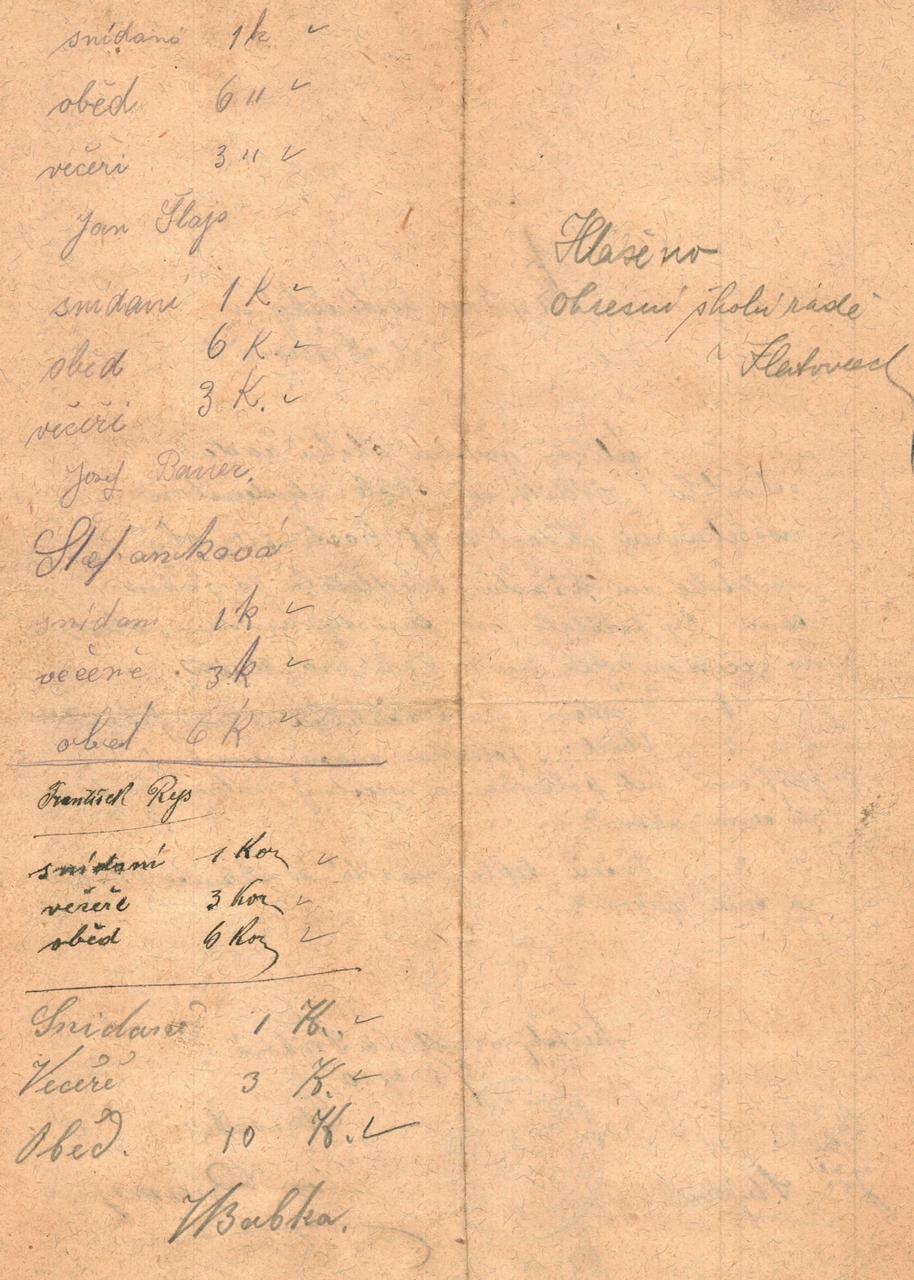 snídaně 1 k
oběd 6 "
večeři 3 "
Jan Šlajs
snídaní 1 K
oběd 6 K
večeři 3 K.
Josef Bauer.
Štefaniková
snídani 1 k
večeně 3 k
oběd 6 K
František Rys
snídaní 1 Kor
večeře 3 Kor
oběd 6 Kor
Snídaně 1 K.
Večeře 3 K.
Oběd. 10 K.
VBabka.
Hlášeno
okresní školní radě